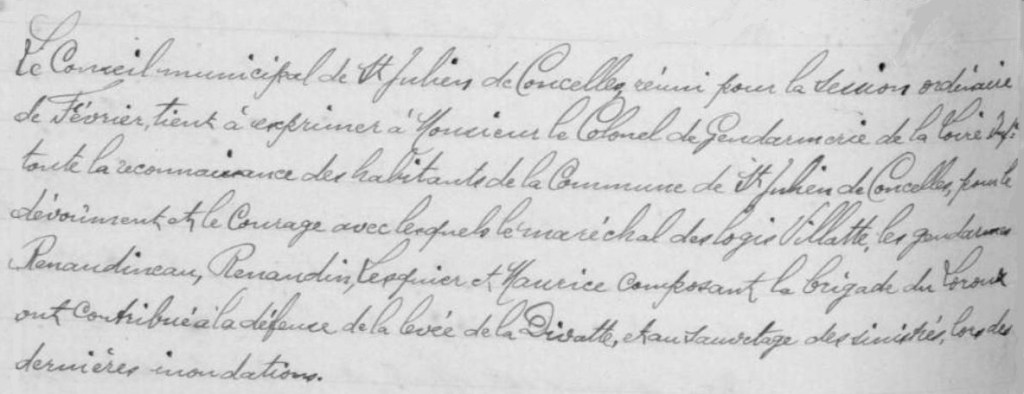 Le Conseil municipal de St Julien de Concelles, réuni pour la session ordinaire
de Février, tient à exprimer à Monsieur le Colonel de Gendarmerie de la Loire Inf.re
toute la reconnaissance des habitants de la Commune de St Julien de Concelles, pour le
dévoûment et le courage avec lesquels le maréchal des logis Villatte, les gendarmes
Renaudineau, Renaudin, Lesquier et Maurice composant la brigade du Loroux
ont contribué à la défense de la levée de la Divatte, et au sauvetage des sinistrés, lors des
dernières inondations.